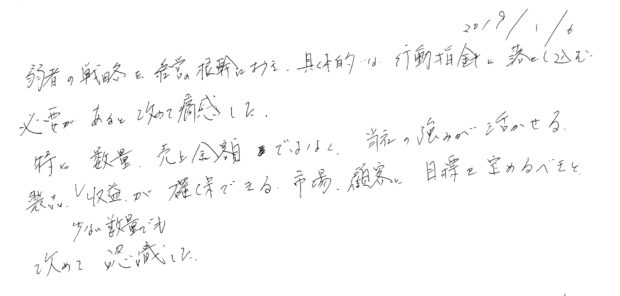 2019/1/6
弱者の戦略を経営の根幹におき、具体的には行動指針に落とし込む
必要があると改めて痛感した。
特に数量、売上金額ではなく、当社の強みが活かせる、
製品、収益が確保できる、市場、顧客に目標を定めるべきと
少ない数量でも
改めて認識した。